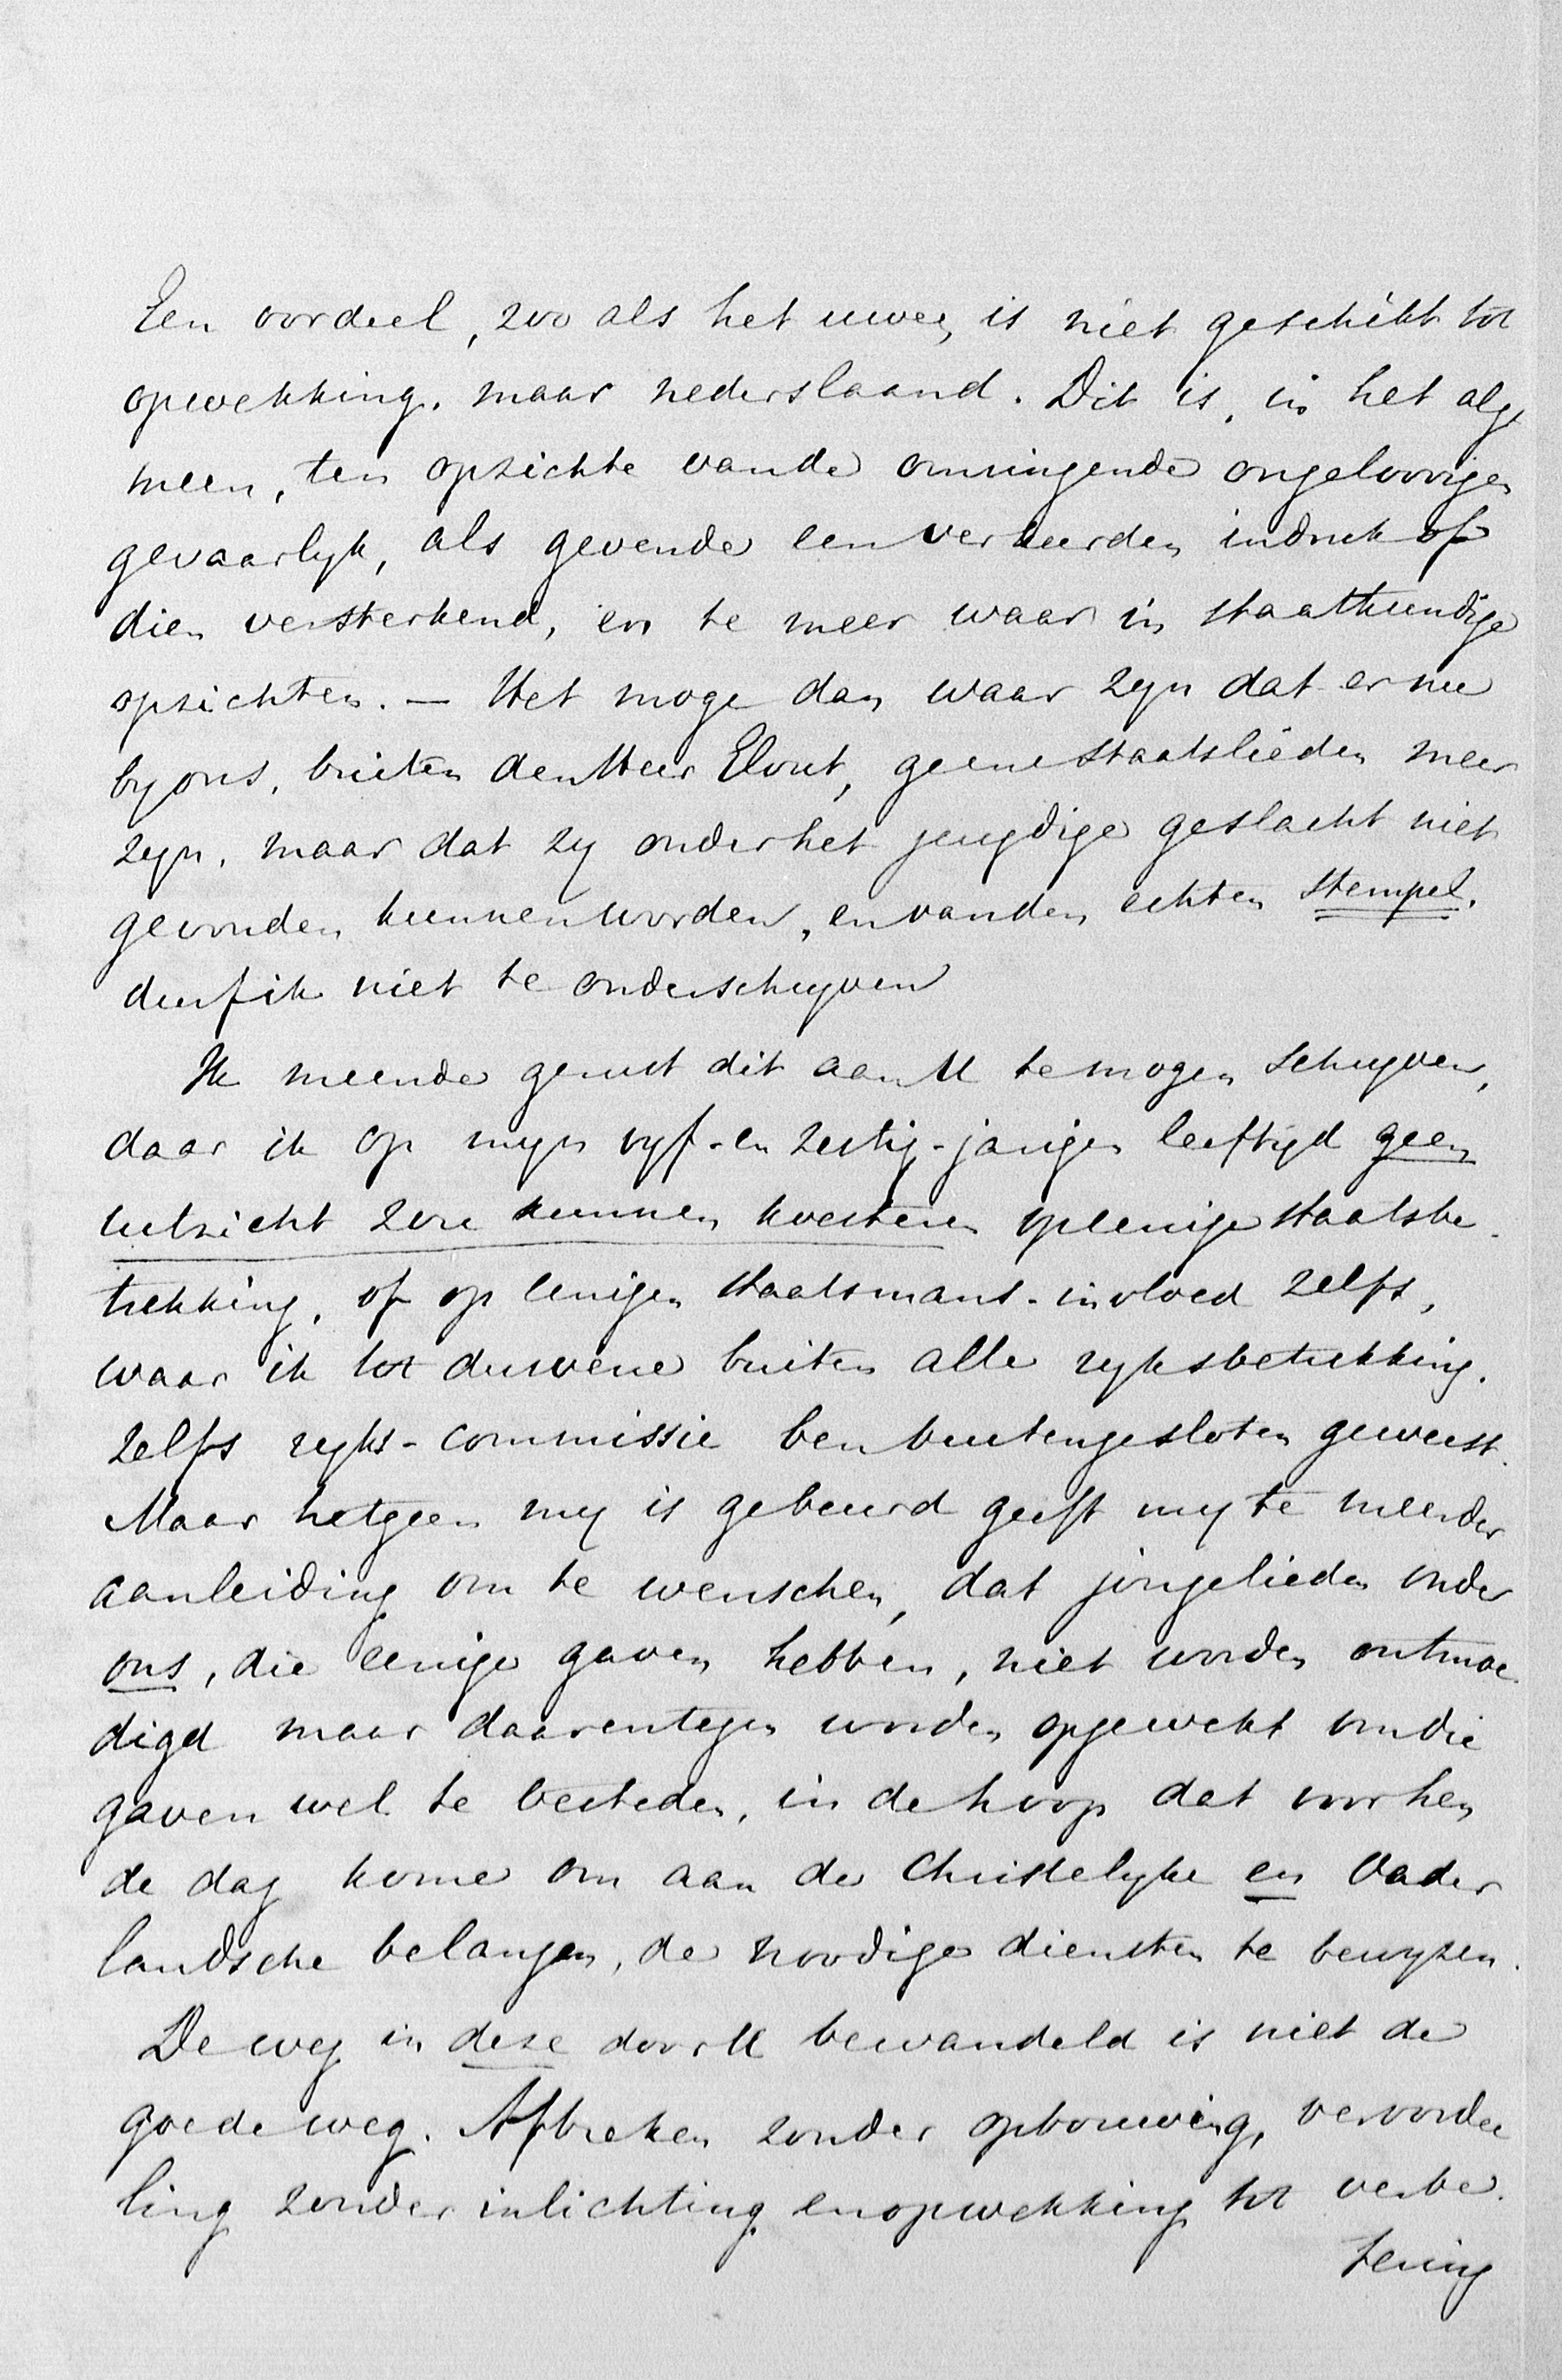 Een oordeel, zoo als het uwe, is niet geschikt tot
opwekking, maar nederslaand. Dit is, in het alge
meen, ten opzichte vande omringende ongeloovigen
gevaarlyk, als gevende een verkeerden indruk of
dien versterkend, en te meer waar in staatkundige
opzichten. — Het moge dan waar zyn dat er nu
by ons, buiten den Heer Elout, geene staatslieden meer
zyn, maar dat zy onder het jeugdige geslacht niet
gevonden kunnen worden, en vanden echten stempel,
durf ik niet te onderschryven
Ik meende gerust dit aan U te mogen schryven,
daar ik op myn vyf-en zestig-jarigen leeftyd geen
uitzicht zou kunnen koesteren op eenige staatsbe-
trekking, of op eenigen staatsmans-invloed zelfs,
waar ik tot dusverre buiten alle ryksbetrekking,
zelfs ryks-commissie ben buitengesloten geweest.
Maar hetgeen my is gebeurd geeft my te meerder
aanleiding om te wenschen, dat jongelieden onder
ons, die eenige gaven hebben, niet worden ontmoe-
digd maar daarentegen worden opgewekt om die
gaven wel te besteden, in de hoop dat voor hen
de dag kome om aan de Christelyke en Vader
landsche belangen, de noodige diensten te bewyzen.
De weg in deze door U bewandeld is niet de
goede weg. Afbreken zonder opbouwing, veroordee
ling zonder inlichting en opwekking tot verbe-
tering